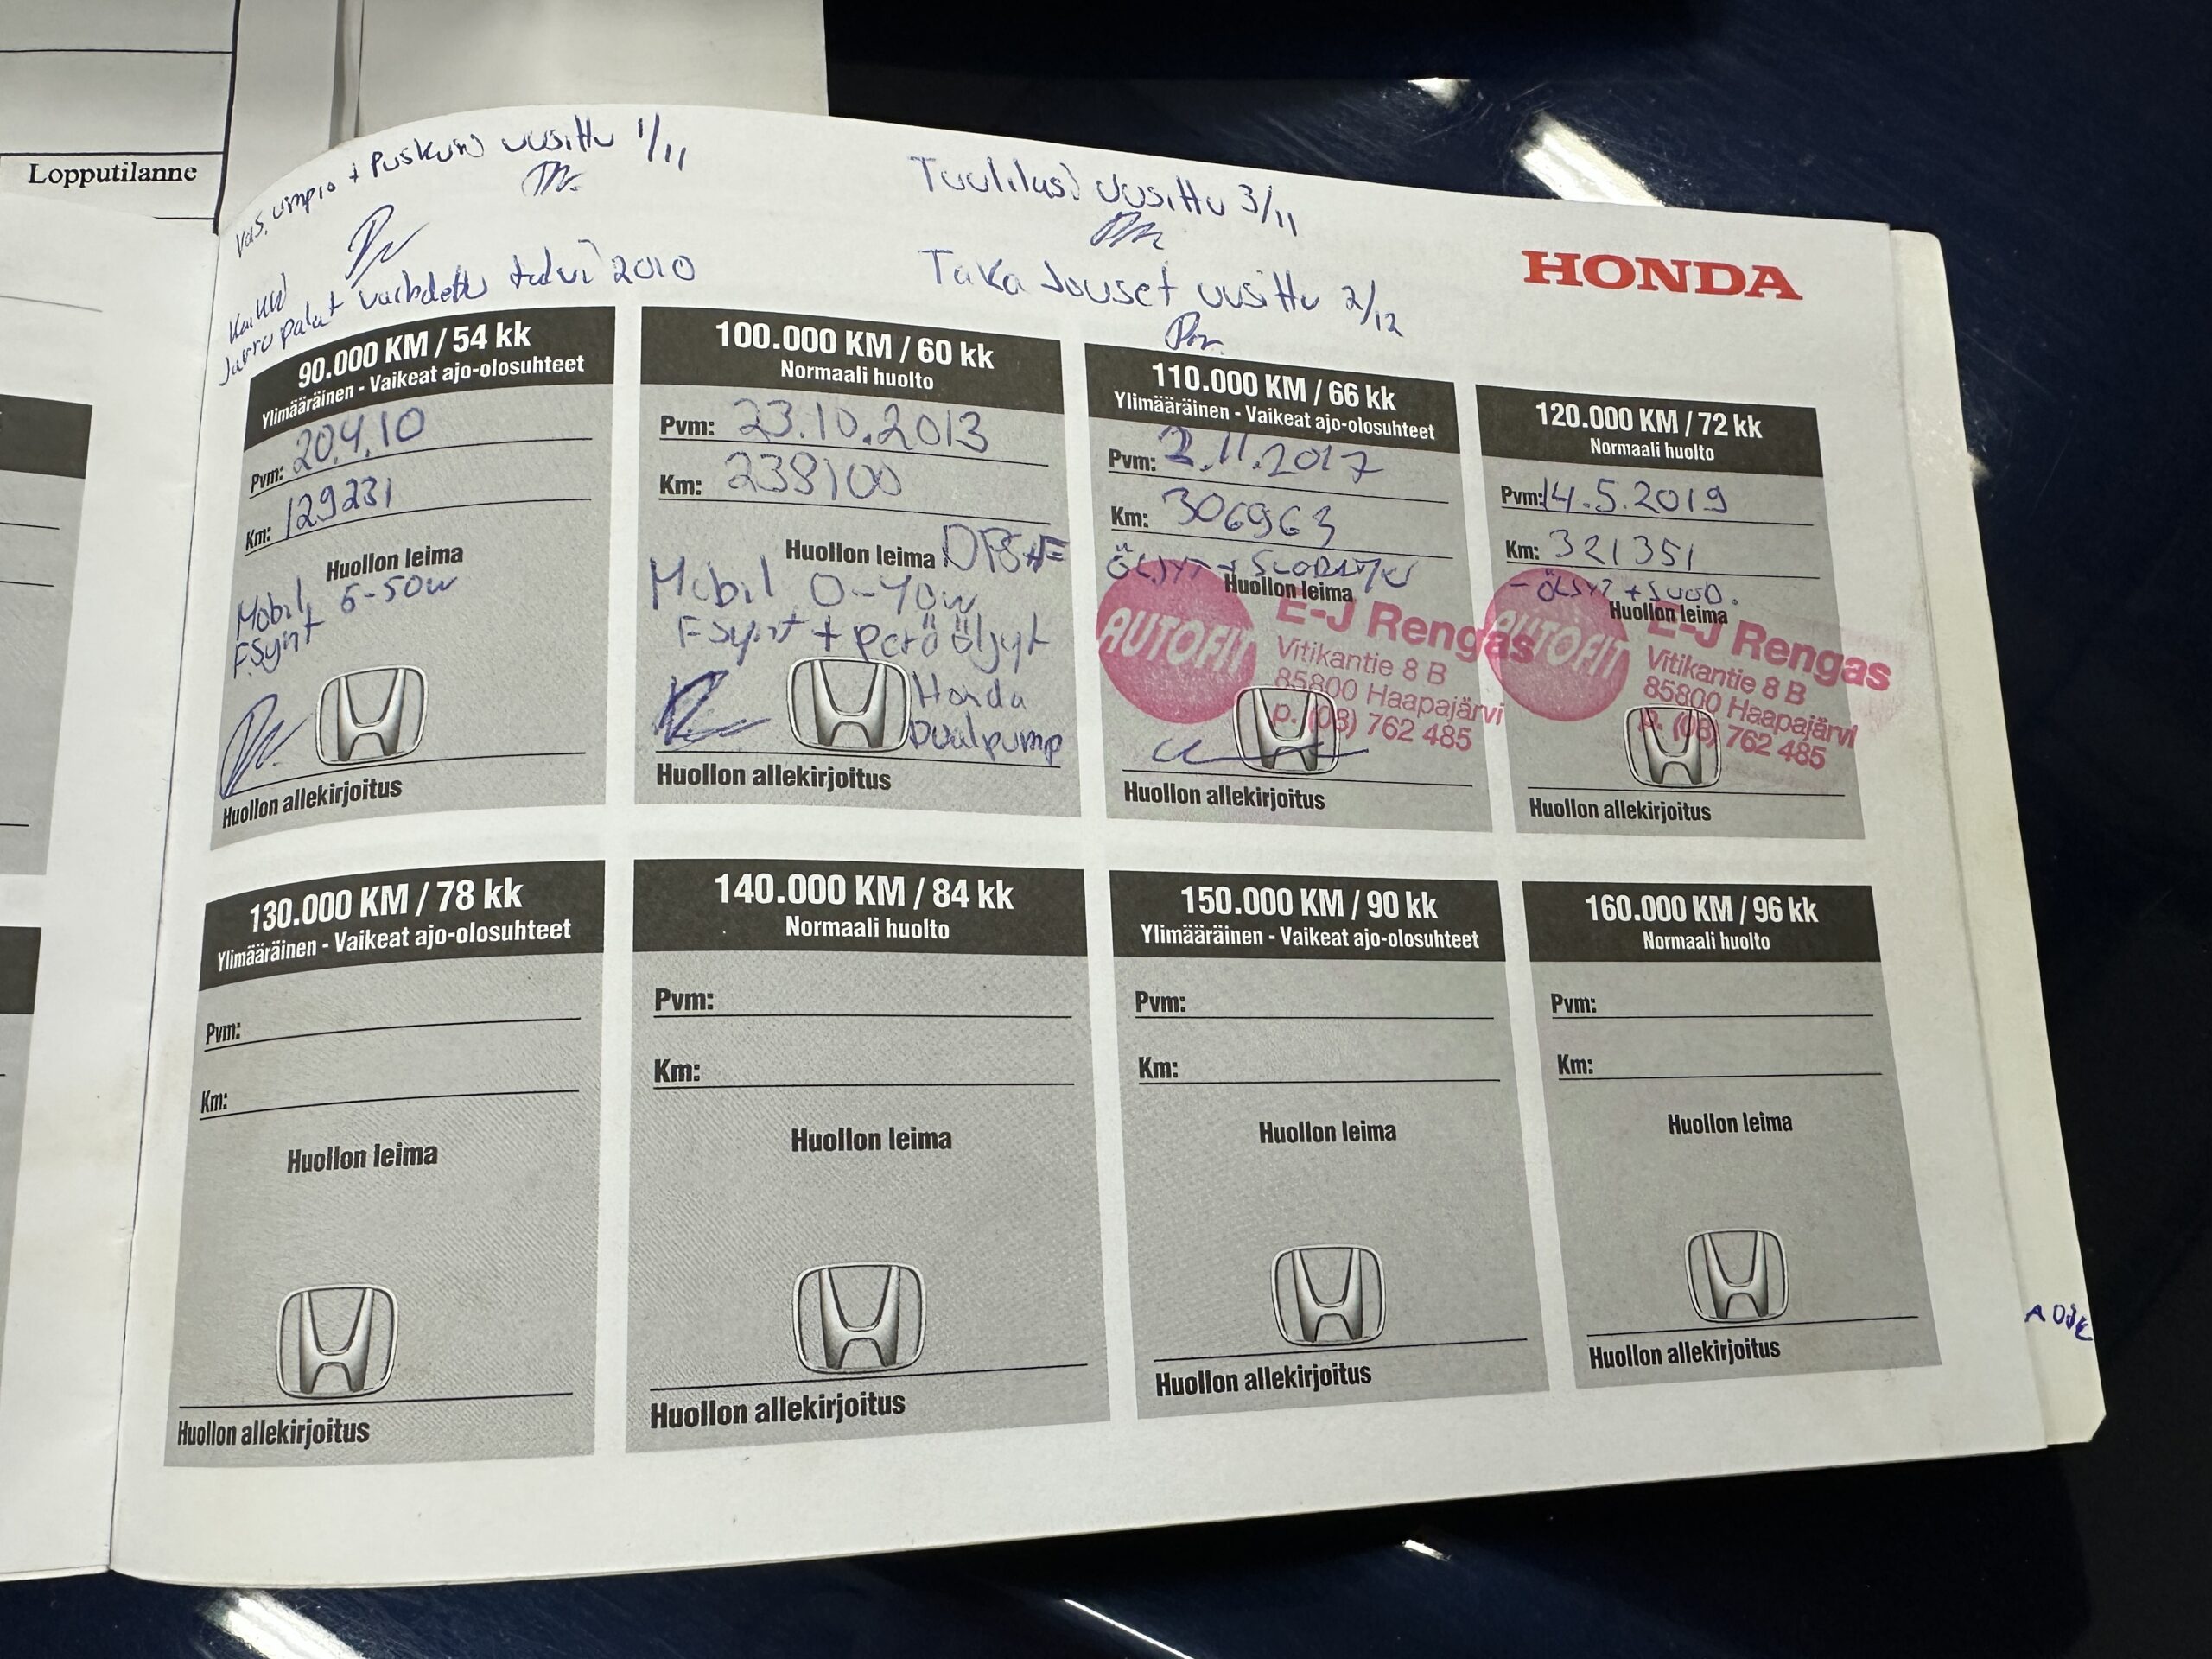 Lopputilanne
Vas. umpio + Puskuri uusittu 1/11
Tuulilasi uusittu 3/11
Kaikki
Jarru palat vaihdettu talvi 2010
Taka Jouset uusittu 2/12
HONDA
90.000 KM / 54 kk
Ylimääräinen - Vaikeat ajo-olosuhteet
Pvm: 20.4.10
Km: 129231
Huollon leima
Mobil 5-50w
FSynt
Huollon allekirjoitus
100.000 KM / 60 kk
Normaali huolto
Pvm: 23.10.2013
Km: 238100
Huollon leima
Mobil 0-40w
FSynt + perä öljyt
Honda
Dualpump
Huollon allekirjoitus
110.000 KM / 66 kk
Ylimääräinen - Vaikeat ajo-olosuhteet
Pvm: 2.11.2017
Km: 306963
ÖLJYT +
Huollon leima
AUTOFIT
E-J Rengas
Vitikantie 8 B
85800 Haapajärvi
p. (08) 762 485
Huollon allekirjoitus
120.000 KM / 72 kk
Normaali huolto
Pvm: 14.5.2019
Km: 321351
- ÖLJYT + SUOD.
Huollon leima
AUTOFIT
E-J Rengas
Vitikantie 8 B
85800 Haapajärvi
p. (08) 762 485
Huollon allekirjoitus
130.000 KM / 78 kk
Ylimääräinen - Vaikeat ajo-olosuhteet
Pvm:
Km:
Huollon leima
Huollon allekirjoitus
140.000 KM / 84 kk
Normaali huolto
Pvm:
Km:
Huollon leima
Huollon allekirjoitus
150.000 KM / 90 kk
Ylimääräinen - Vaikeat ajo-olosuhteet
Pvm:
Km:
Huollon leima
Huollon allekirjoitus
160.000 KM / 96 kk
Normaali huolto
Pvm:
Km:
Huollon leima
Huollon allekirjoitus